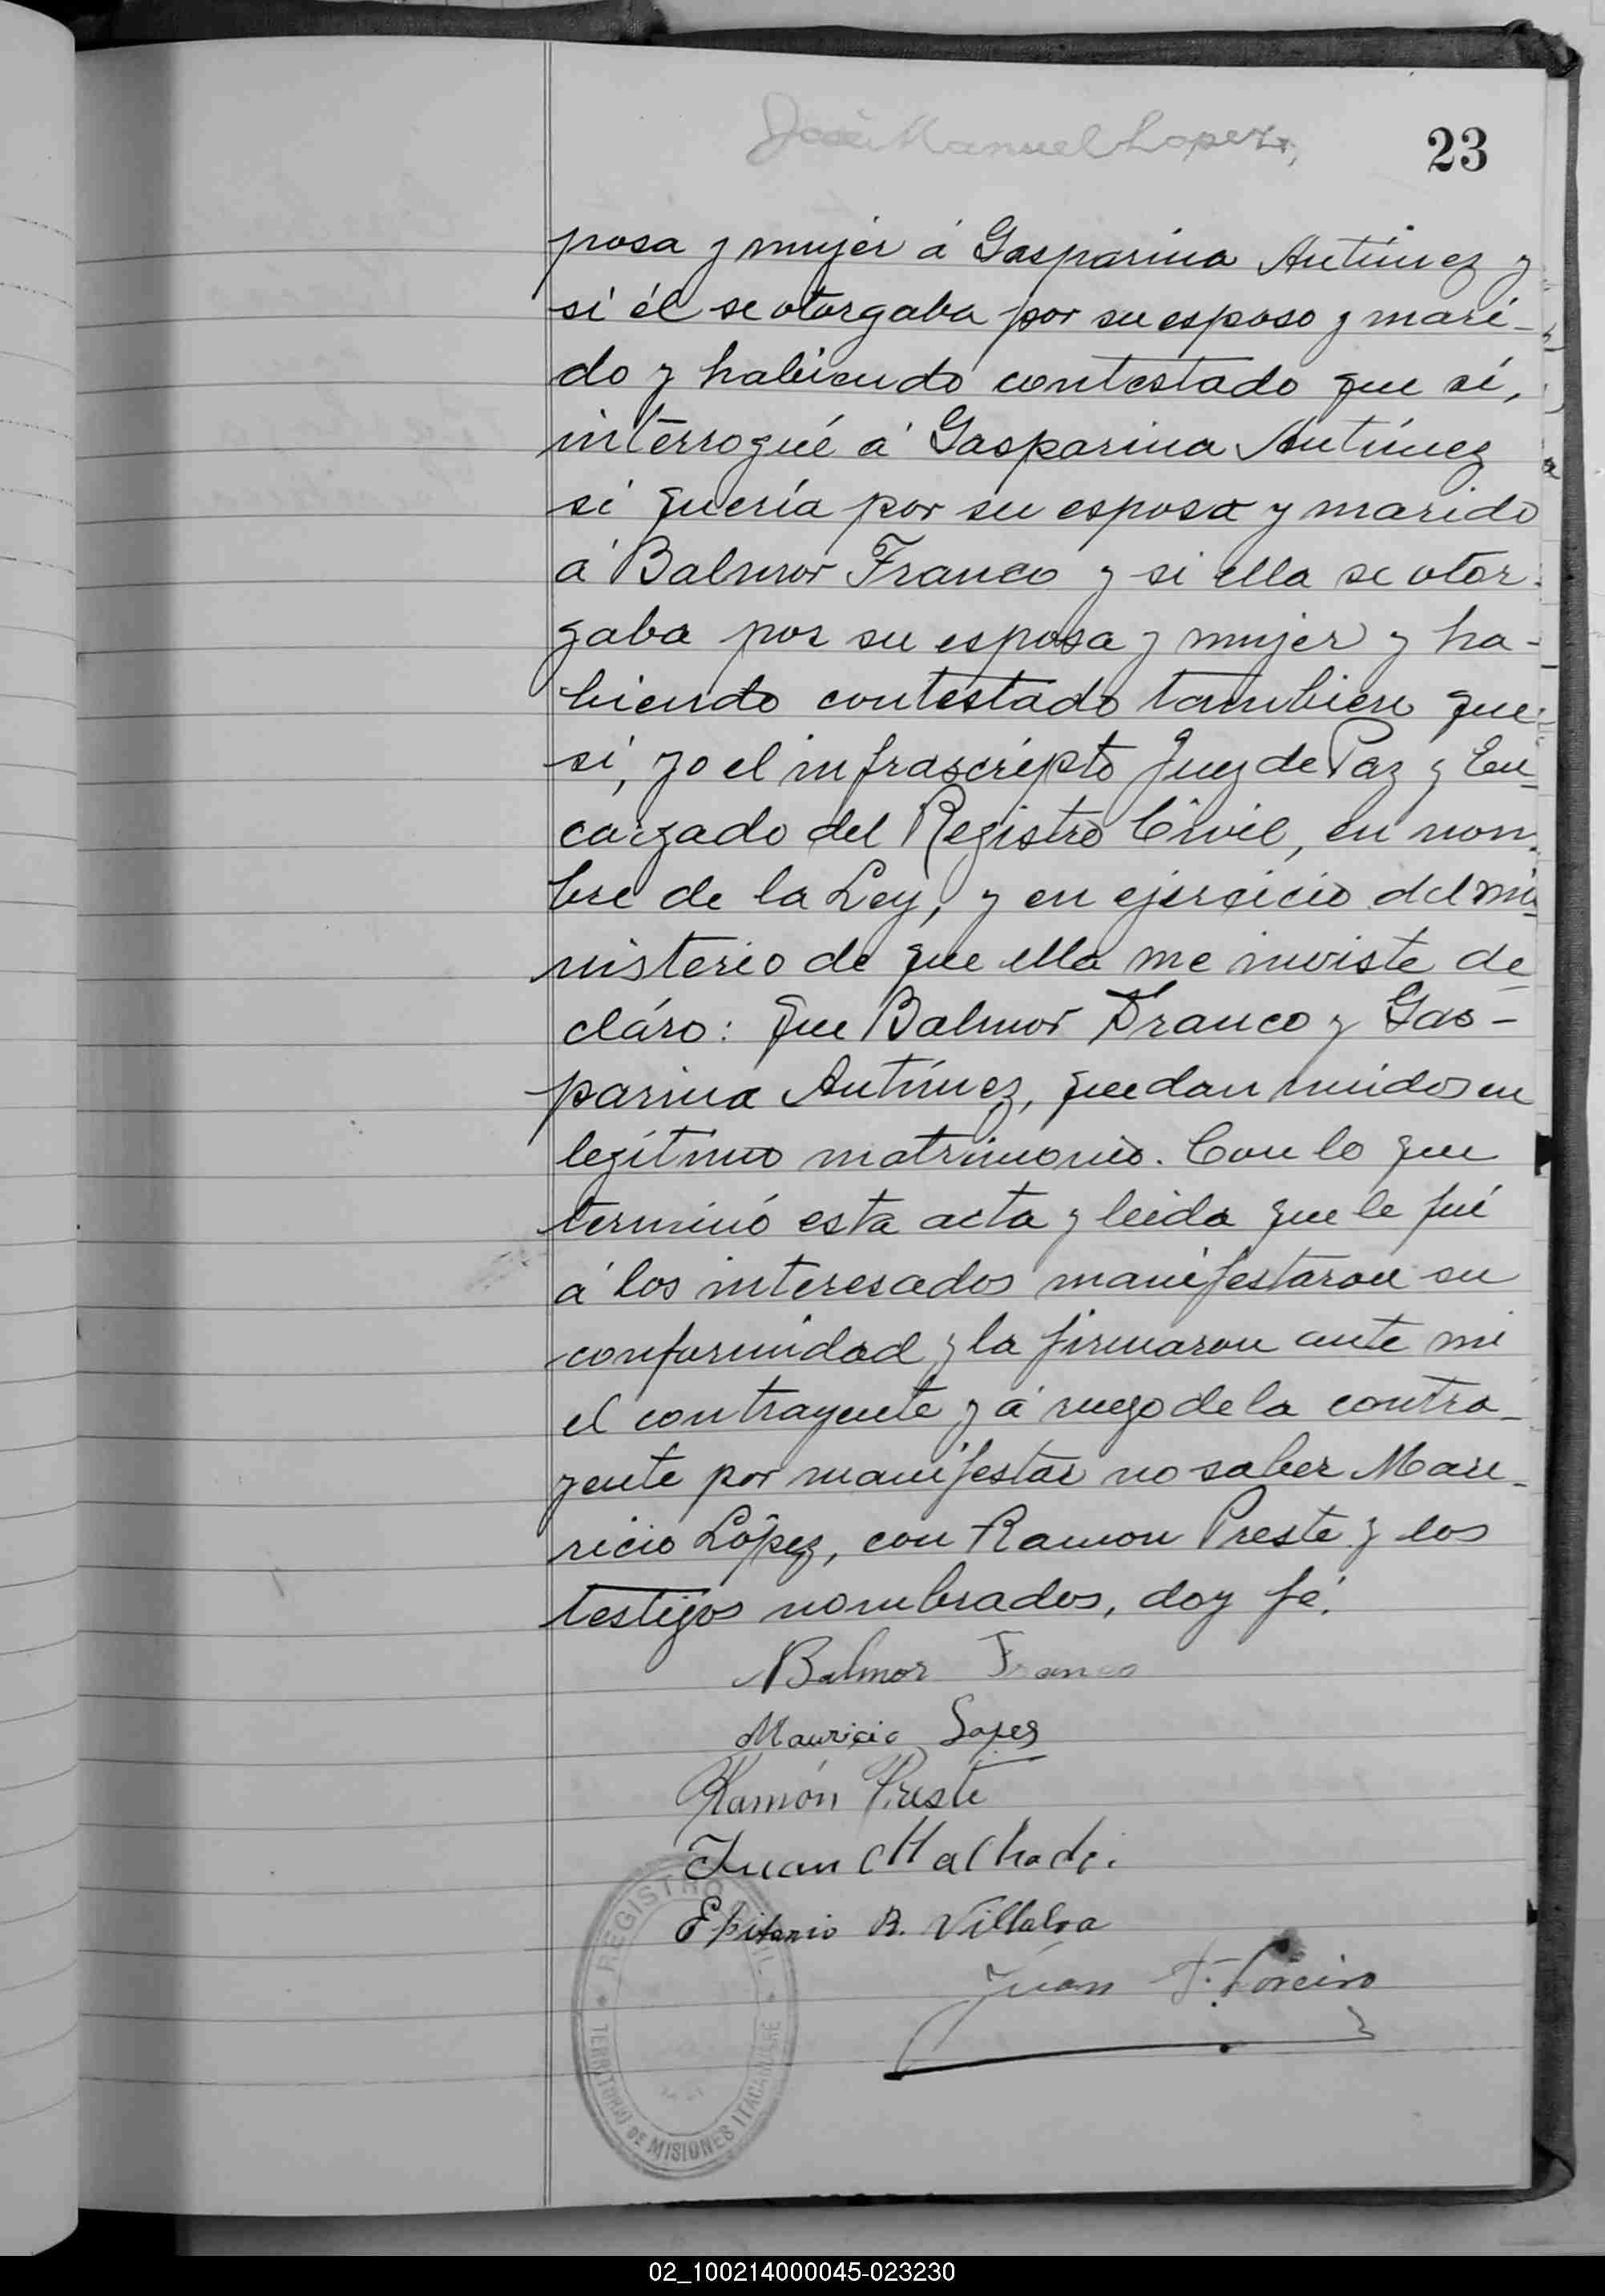 José Manuel Lopez,
23
posa y mujer á Gasparina Antúnez y
si él se otorgaba por su esposo y mari-
do y habiendo contestado que sí,
interrogué á Gasparina Antúnez
si quería por su esposo y marido
á Balmor Franco y si ella se otor-
gaba por su esposa y mujer y ha-
biendo contestado tambien que
si, yo el infrascripto Juez de Paz y En-
cargado del Registro Civil, en nom-
bre de la Ley, y en ejersicio del mi-
nisterio de que ella me inviste de-
cláro: que Balmor Franco y Gas-
parina Antúnez, quedan unidos en
legítimo matrimonio. Con lo que
terminó esta acta y leida que le fué
á los interesados manifestaron su
conformidad y la firmaron ante mi
el contrayente y á ruego de la contra-
yente por manifestar no saber Mau-
ricio López, con Ramon Preste y los
testigos nombrados, doy fé.
Balmor Franco
Mauricio Lopes
Ramón Preste
Juan Machado.
Epifanio B. Villalva
Juan F. Loreiro
REGISTRO CIVIL
TERRITORIO DE MISIONES ITACARUARE
02_100214000045-023230